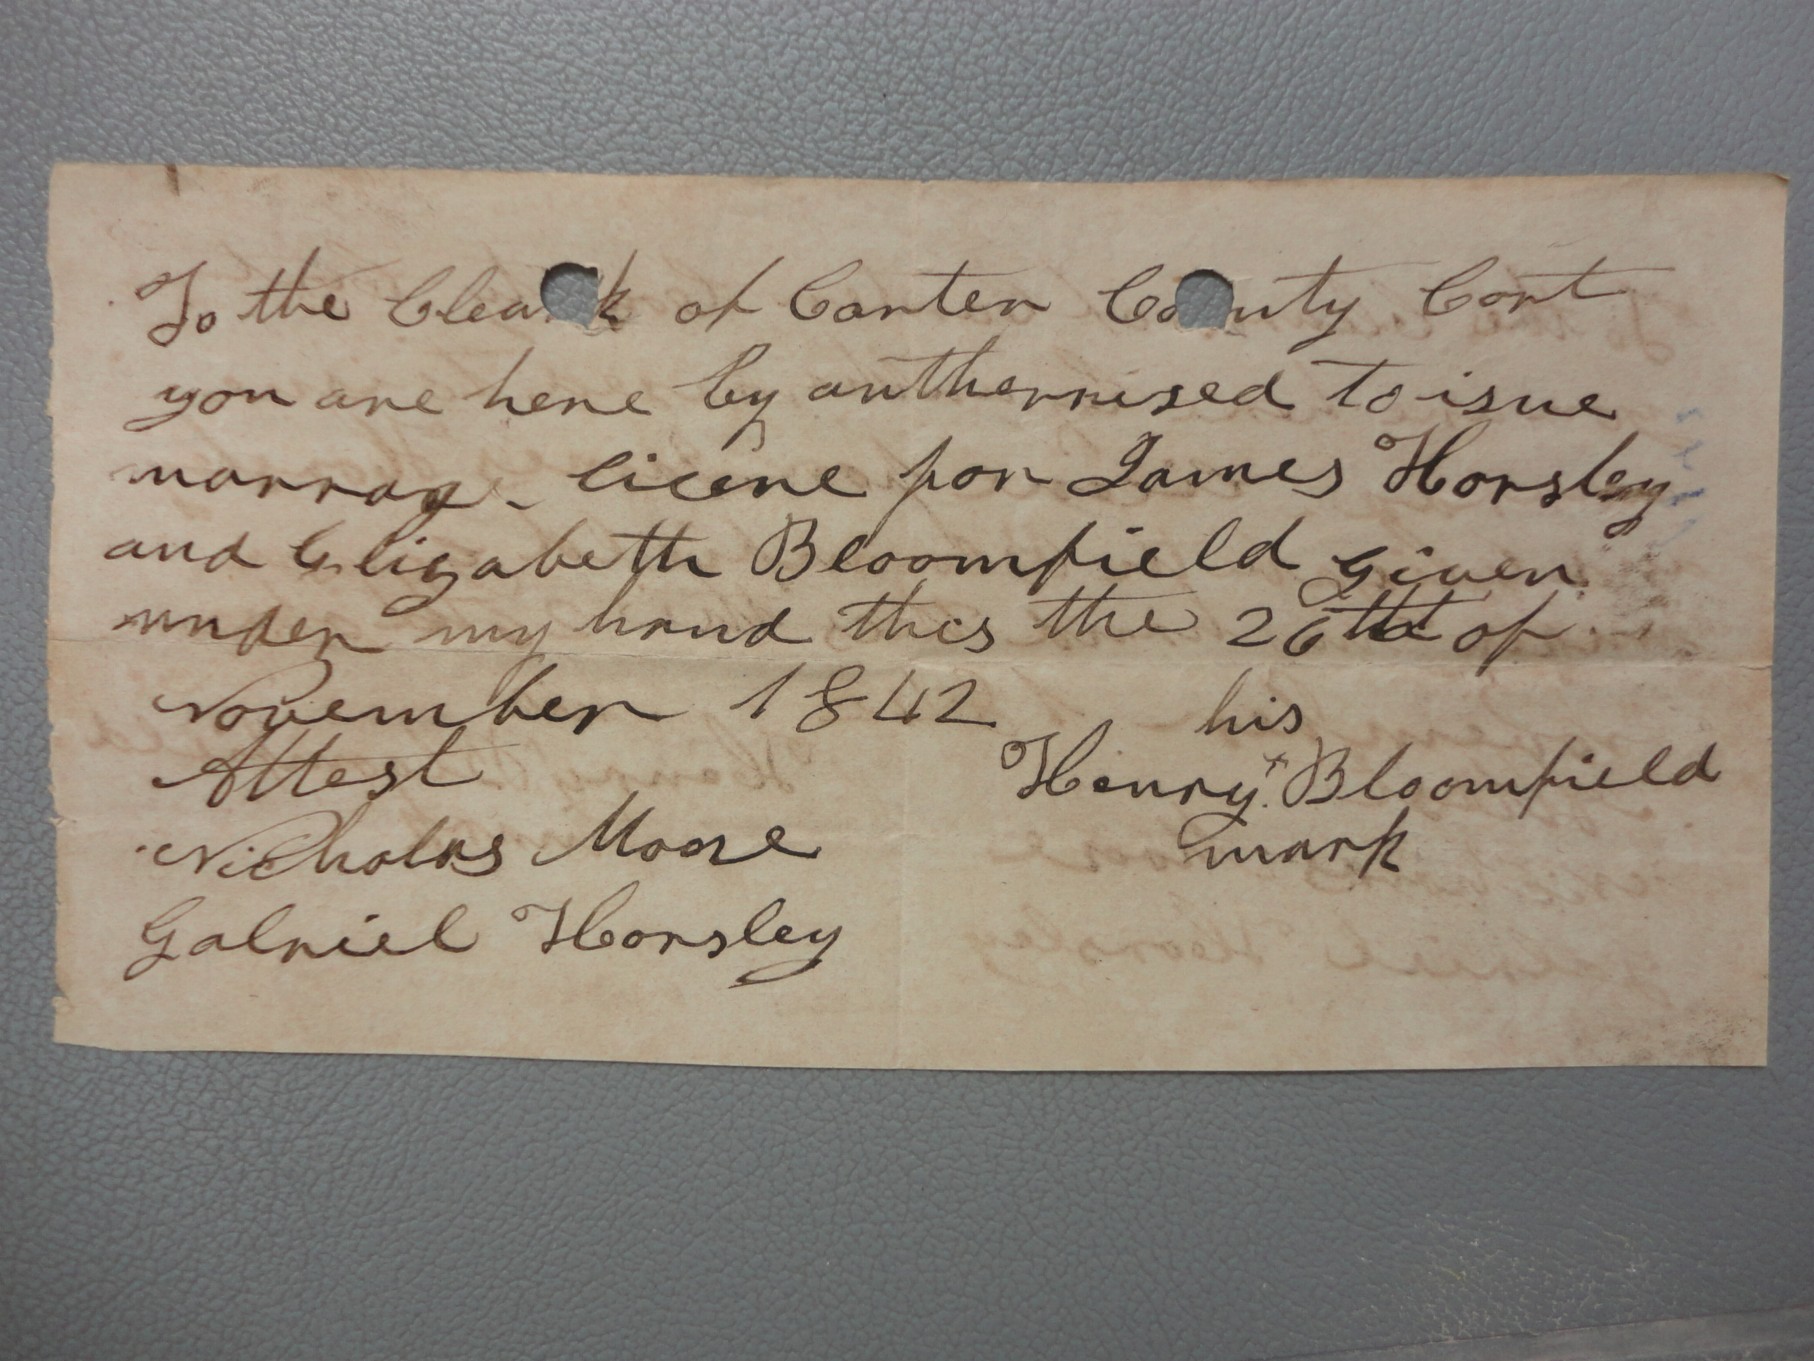 To the Cleark of Carter County Cort
you are here by autherrised to isue
marrage licene for James Horsley
and Elizabeth Bloomfield Given
under my hand this the 26th of
November 1842
his
Attest
Henry x Bloomfield
mark
Nicholas Moore
Gabriel Horsley